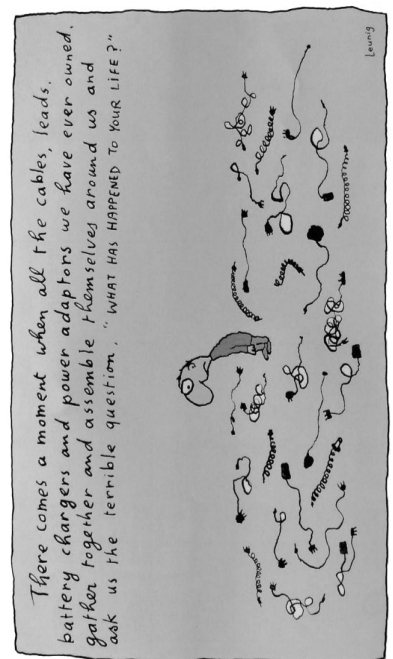 There comes a moment when all the cables, leads,
battery chargers and power adaptors we have ever owned,
gather together and assemble themselves around us and
ask us the terrible question. "WHAT HAS HAPPENED TO YOUR LIFE?"
Leunig